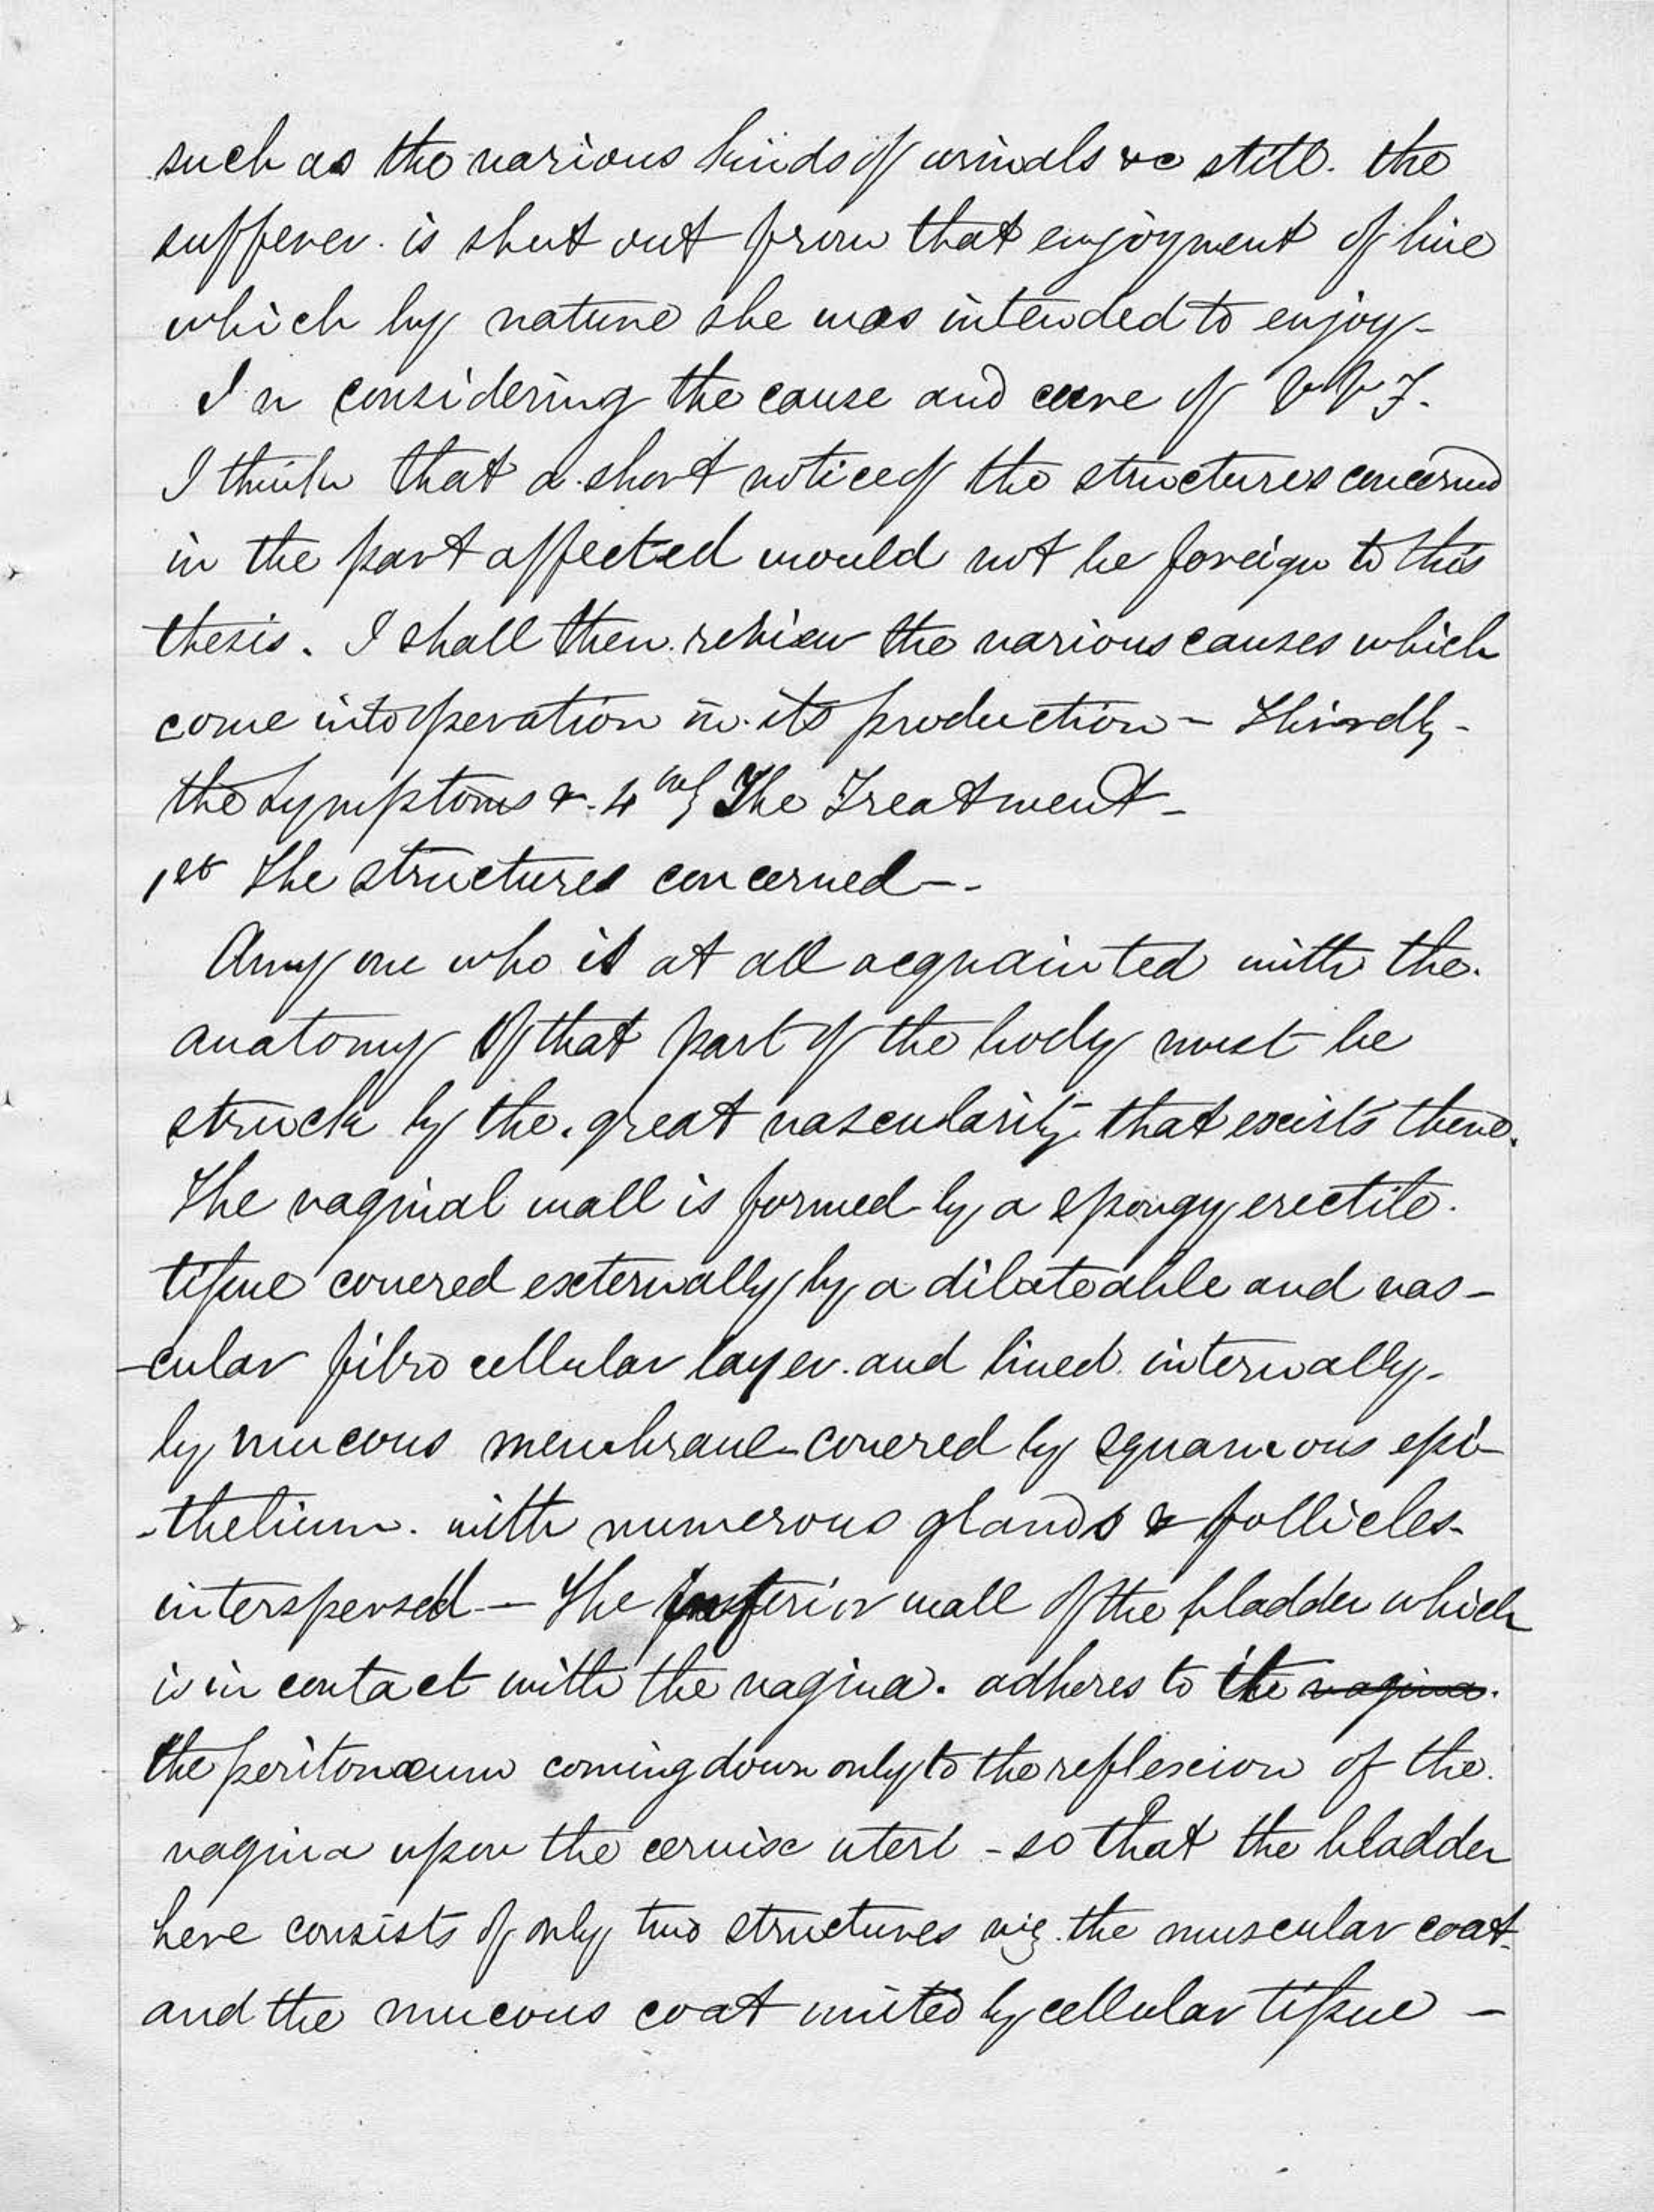 such as the various kinds of urinals &c still. the
sufferer. is shut out from that enjoyment of life
which by nature she was intended to enjoy-
In considering the cause and cure of V.V.F.
I think that a short notice of the structures concerned
in the part affected would not be foreign to this
thesis. I shall then review the various causes which
come into operation in its production - Thirdly -
the Symptoms & 4thly The Treatment -
1st The structures concerned --
Any one who is at all acquainted with the.
anatomy of that part of the body must be
struck by the great vascularity that exists there.
The vaginal wall is formed by a spongy erectile.
tissue covered externally by a dilateable and vas-
-cular fibro cellular layer. and lined internally-
by mucous membrane-covered by squamous epi-
-thelium. with numerous glands & follicles-
interspersed - The inferior wall of the bladder which
is in contact with the vagina. adheres to it vagina.
the peritonæum coming down only to the reflexion of the.
vagina upon the cervix uteri - so that the bladder
here consists of only two structures viz. the muscular coat.
and the mucous coat united by cellular tissue -